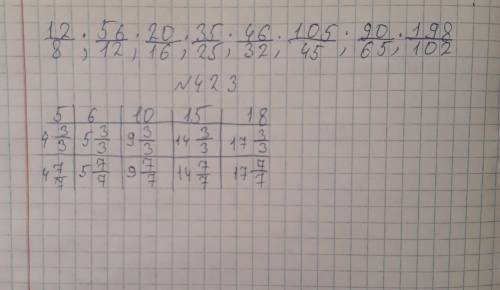 12/8 ; 56/12 ; 20/16 ; 35/25 ; 46/32 ; 105/45 ; 90/65 ; 198/102
№423
5 6 10 15 18
4 3/3 5 3/3 9 3/3 14 3/3 17 3/3
4 7/7 5 7/7 9 7/7 14 7/7 17 7/7